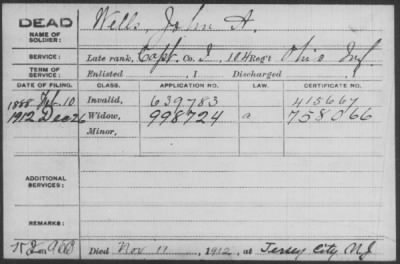 DEAD
NAME OF SOLDIER: Wells, John A.
SERVICE: Late rank, Capt. Co. I, 104 Reg't Ohio Inf.
TERM OF SERVICE: Enlisted , I Discharged , I
DATE OF FILING. CLASS. APPLICATION NO. LAW. CERTIFICATE NO.
1888 10 Invalid, 639783 415667
1912 Dec 26 Widow, 998724 a. 758066
Minor,
ADDITIONAL SERVICES:
REMARKS:
Died Nov 11, 1912, at Jersey City NJ